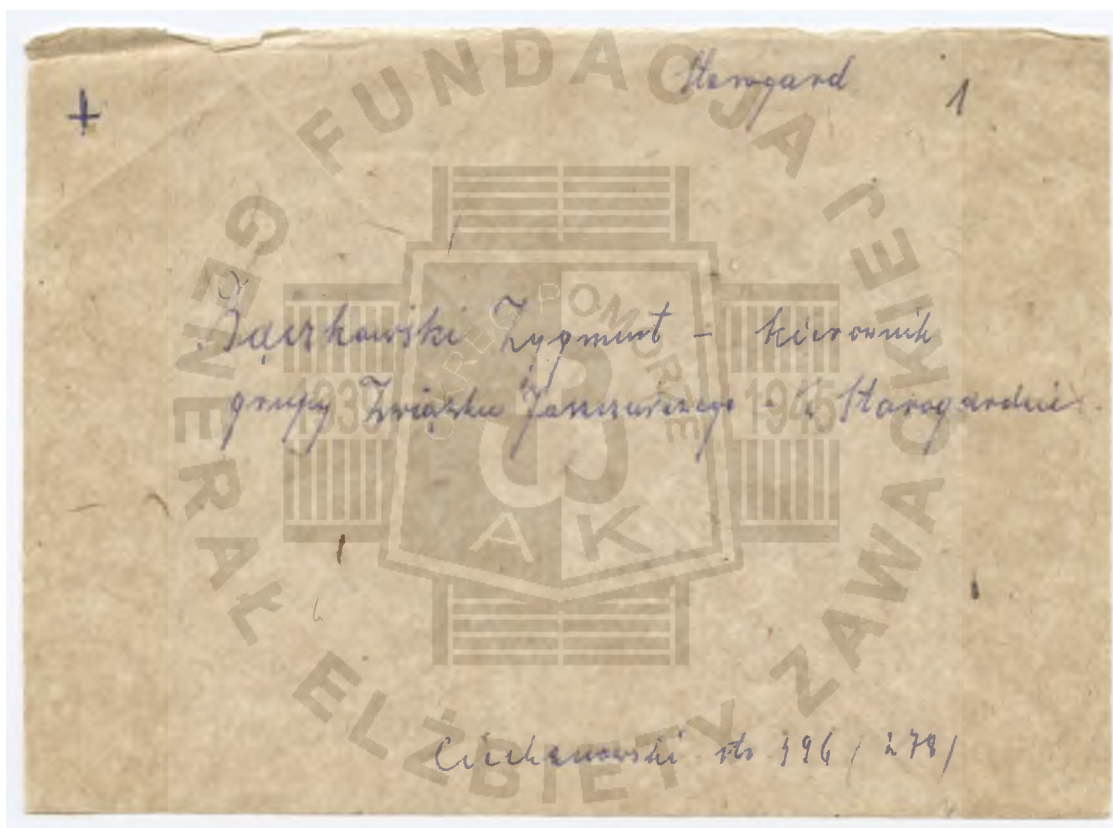 Starogard 1
+
Bączkowski Zygmunt - kierownik
grupy Związku Jaszczurczego - w Starogardzie
Ciechanowski str 196 / 278 /
FUNDACJA GENERAŁ ELŻBIETY ZAWACKIEJ
OKRĘG POMORZE
1939 1945
AK